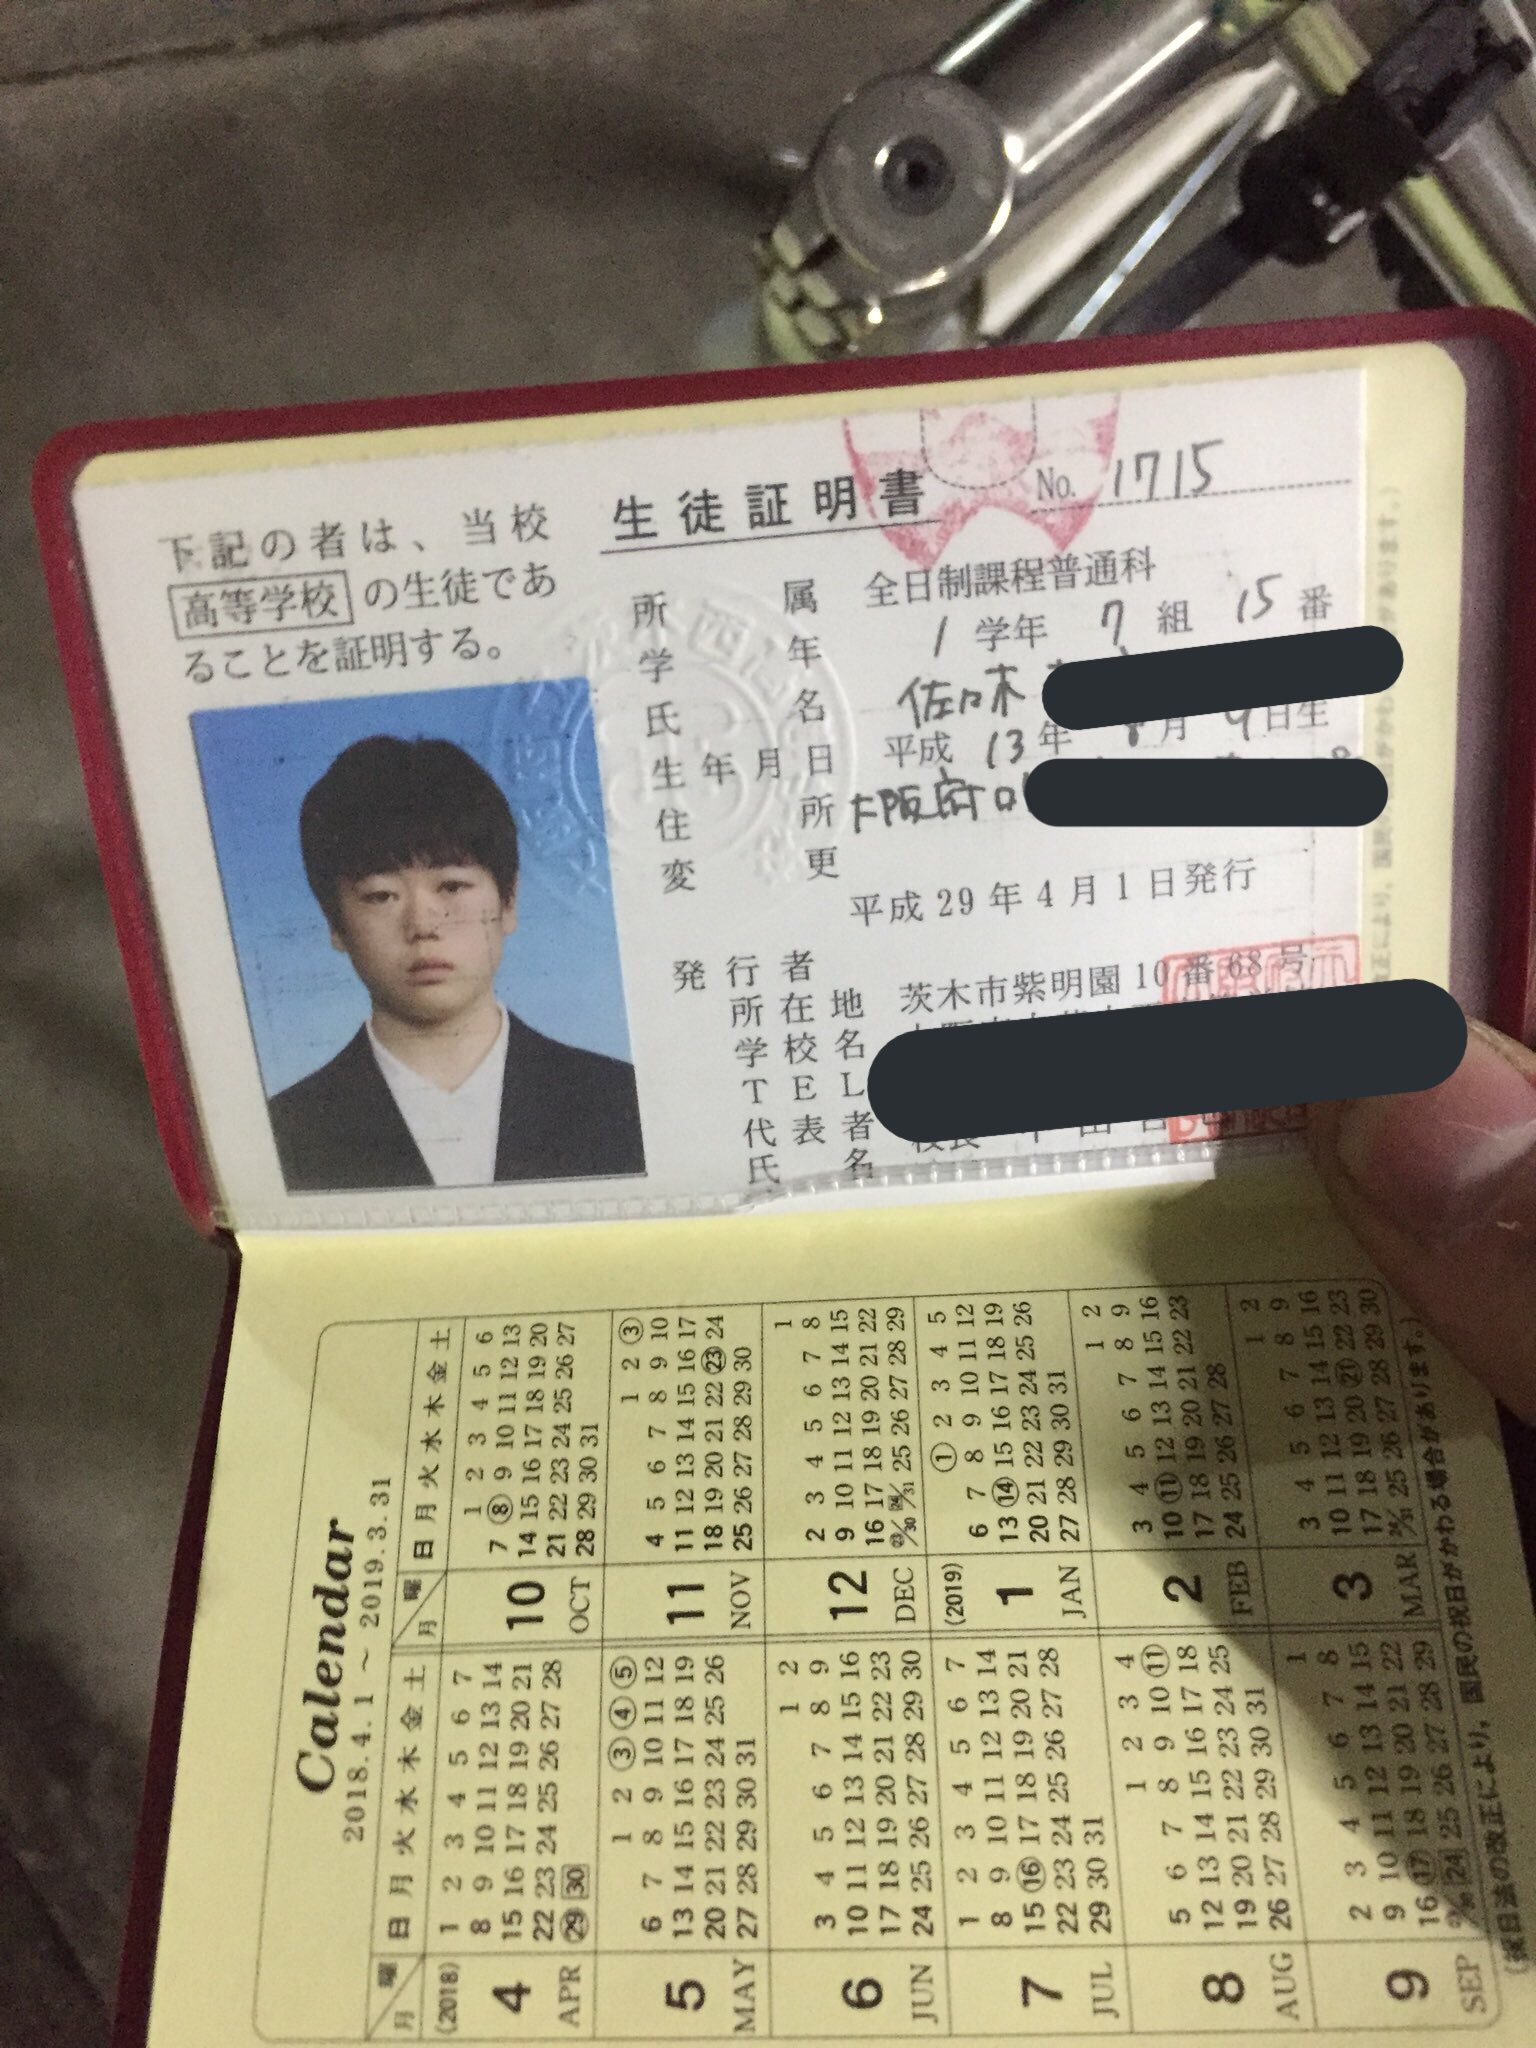 生徒証明書
No. 1715
下記の者は、当校
高等学校の生徒であ
ることを証明する。
所属 全日制課程普通科
学年 1学年 7組 15番
氏名 佐々木
生年月日 平成13年 月9日生
住所 大阪府
変更
平成29年4月1日発行
発行者
所在地 茨木市紫明園10番68号
学校名
TEL
代表者 校長
氏名
Calendar
2018.4.1 ~ 2019.3.31
月 曜 日 月 火 水 木 金 土
(2018)
4 APR
1 2 3 4 5 6 7
8 9 10 11 12 13 14
15 16 17 18 19 20 21
22 23 24 25 26 27 28
29 30
5 MAY
1 2 3 4 5
6 7 8 9 10 11 12
13 14 15 16 17 18 19
20 21 22 23 24 25 26
27 28 29 30 31
6 JUN
1 2
3 4 5 6 7 8 9
10 11 12 13 14 15 16
17 18 19 20 21 22 23
24 25 26 27 28 29 30
7 JUL
1 2 3 4 5 6 7
8 9 10 11 12 13 14
15 16 17 18 19 20 21
22 23 24 25 26 27 28
29 30 31
8 AUG
1 2 3 4
5 6 7 8 9 10 11
12 13 14 15 16 17 18
19 20 21 22 23 24 25
26 27 28 29 30 31
9 SEP
1
2 3 4 5 6 7 8
9 10 11 12 13 14 15
16 17 18 19 20 21 22
23/30 24 25 26 27 28 29
月 曜 日 月 火 水 木 金 土
10 OCT
1 2 3 4 5 6
7 8 9 10 11 12 13
14 15 16 17 18 19 20
21 22 23 24 25 26 27
28 29 30 31
11 NOV
1 2 3
4 5 6 7 8 9 10
11 12 13 14 15 16 17
18 19 20 21 22 23 24
25 26 27 28 29 30
12 DEC
1
2 3 4 5 6 7 8
9 10 11 12 13 14 15
16 17 18 19 20 21 22
23/30 24/31 25 26 27 28 29
(2019)
1 JAN
1 2 3 4 5
6 7 8 9 10 11 12
13 14 15 16 17 18 19
20 21 22 23 24 25 26
27 28 29 30 31
2 FEB
1 2
3 4 5 6 7 8 9
10 11 12 13 14 15 16
17 18 19 20 21 22 23
24 25 26 27 28
3 MAR
1 2
3 4 5 6 7 8 9
10 11 12 13 14 15 16
17 18 19 20 21 22 23
24/31 25 26 27 28 29 30
(祝日法の改正により，国民の祝日がかわる場合があります。)